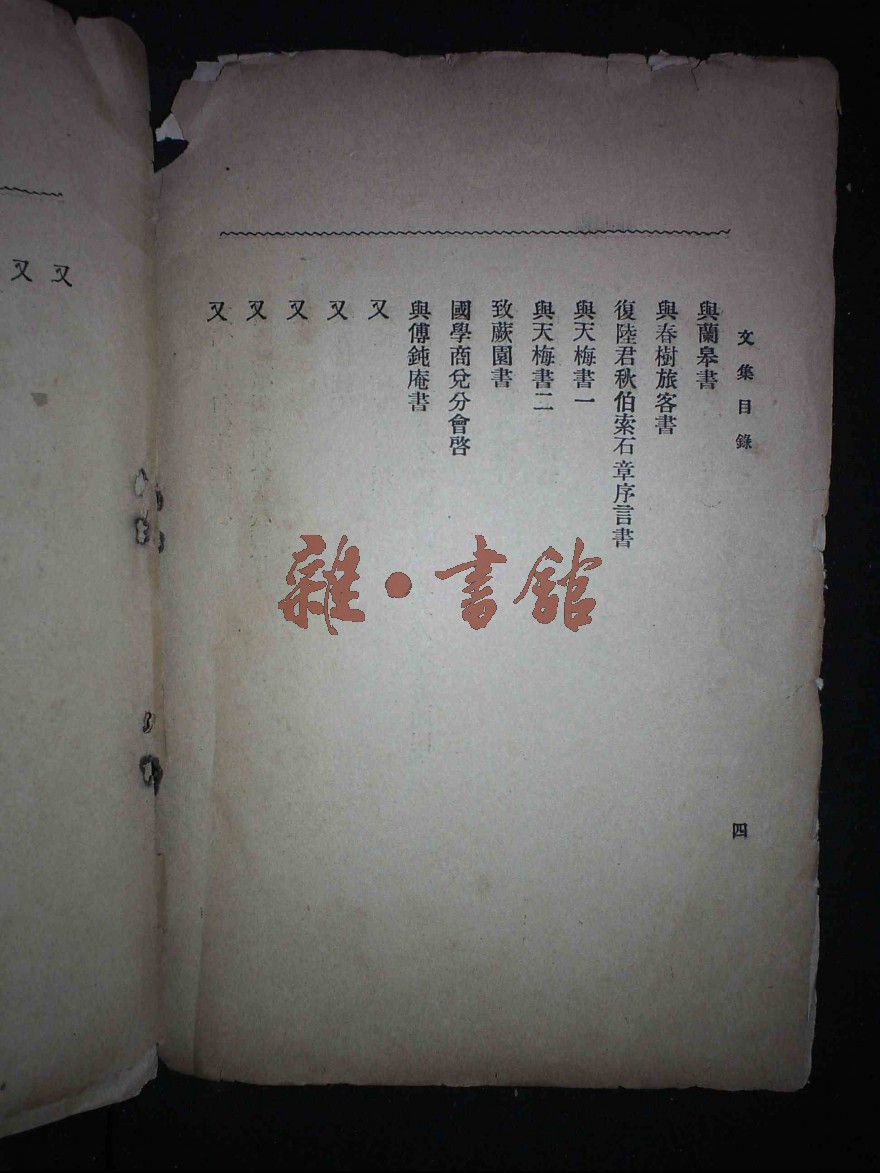 文集目錄
四
與蘭皋書
與春樹旅客書
復陸君秋伯索石章序言書
與天梅書一
與天梅書二
致蕨園書
國學商兌分會啓
與傅鈍庵書
又
又
又
又
又
又
又
雜·書館